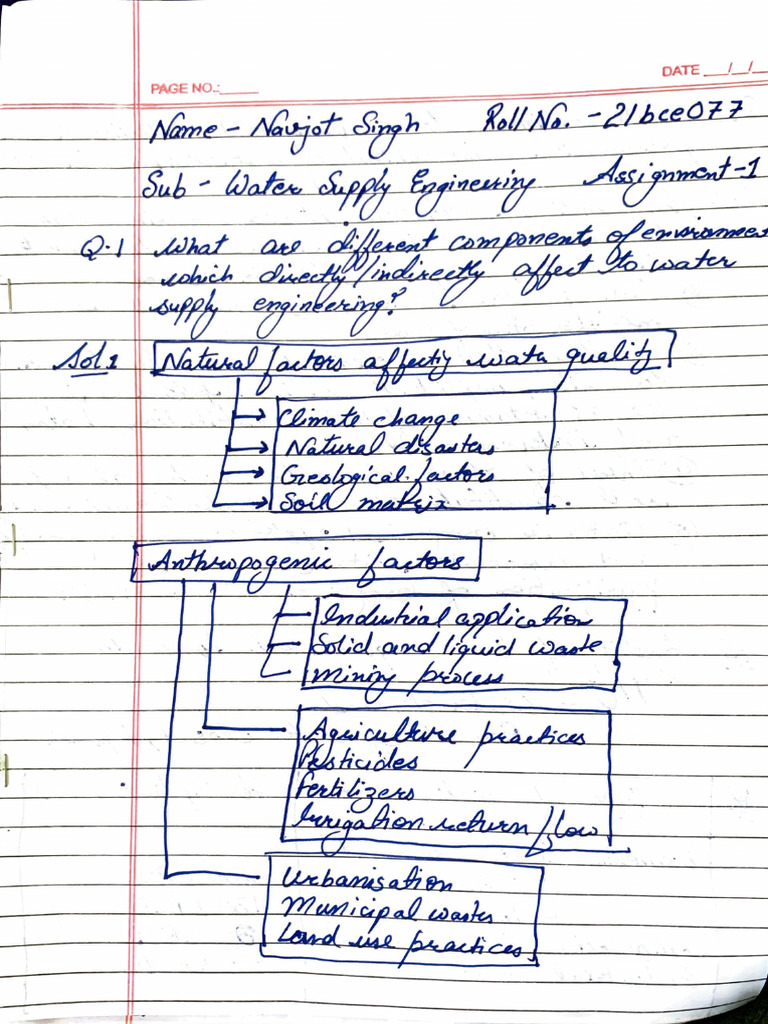 PAGE NO.:
DATE / /
Name - Navjot Singh Roll No. - 21bce077
Sub - Water Supply Engineering Assignment-1
Q.1 What are different components of environment
which directly/indirectly affect to water
supply engineering?
Sol 1 Natural factors affectig wate quality
Climate change
Natural disasters
Geological factors
Soil matrix
Anthropogenic factors
Industrial application
Solid and liquid waste
Mining process
Agriculture practices
Pesticides
Fertilizers
Irrigation return flow
Urbanisation
Municipal wastes
Land use practices